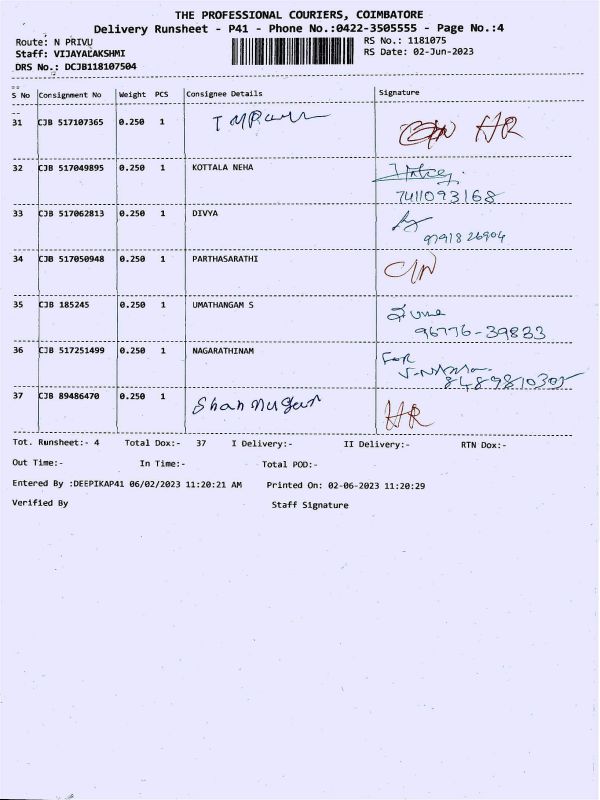 THE PROFESSIONAL COURIERS, COIMBATORE
Delivery Runsheet - P41 - Phone No.:0422-3505555 - Page No.:4
Route: N PRIVU
RS No.: 1181075
Staff: VIJAYALAKSHMI
RS Date: 02-Jun-2023
DRS No.: DCJB118107504
S No Consignment No Weight PCS Consignee Details Signature
31 CJB 517107365 0.250 1 HR
32 CJB 517049895 0.250 1 KOTTALA NEHA
7411093168
33 CJB 517062813 0.250 1 DIVYA
9791826904
34 CJB 517050948 0.250 1 PARTHASARATHI
35 CJB 185245 0.250 1 UMATHANGAM S
96776-39833
36 CJB 517251499 0.250 1 NAGARATHINAM For
37 CJB 89486470 0.250 1 Shanmugam HR
Tot. Runsheet:- 4 Total Dox:- 37 I Delivery:- II Delivery:- RTN Dox:-
Out Time:- In Time:- Total POD:-
Entered By :DEEPIKAP41 06/02/2023 11:20:21 AM Printed On: 02-06-2023 11:20:29
Verified By Staff Signature